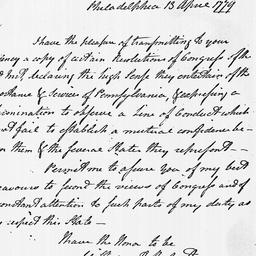 Philadelphia 13 April 1779
I have the pleasure of transmitting to your
ency a copy of certain Resolutions of Congress of the
d Inst. declaring the high Sense they entertain of the
ortance & Services of Pennsylvania, & expressing a
ermination to observe a Line of Conduct which
not fail to establish a mutual confidence be-
en them & the several States they represent —
Permit me to assure you of my best
eavours to second the views of Congress and of
constant attention to such parts of my duty as
respect this State —
I have the Honor to be